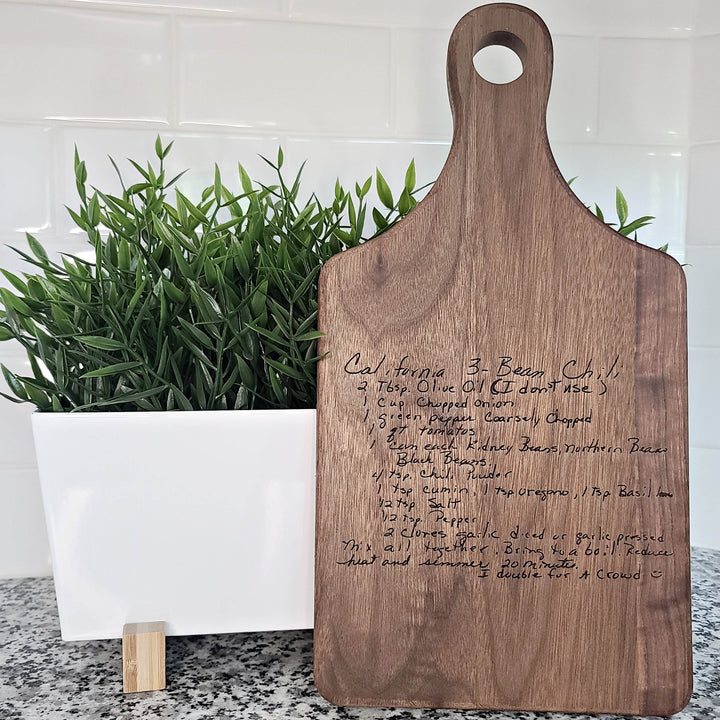 California 3-Bean Chili
2 Tbsp. Olive Oil (I don't use)
1 Cup Chopped Onion
1 green pepper Coarsely Chopped
1 qt tomatos
1 can each Kidney Beans, Northern Beans
Black Beans
4 tsp. Chili Powder
1 tsp cumin, 1 tsp oregano, 1 Tsp. Basil
1/2 tsp Salt
1/2 tsp. Pepper
2 cloves garlic diced or garlic pressed
Mix all together. Bring to a boil. Reduce
heat and simmer 20 minutes.
I double for A Crowd ☺